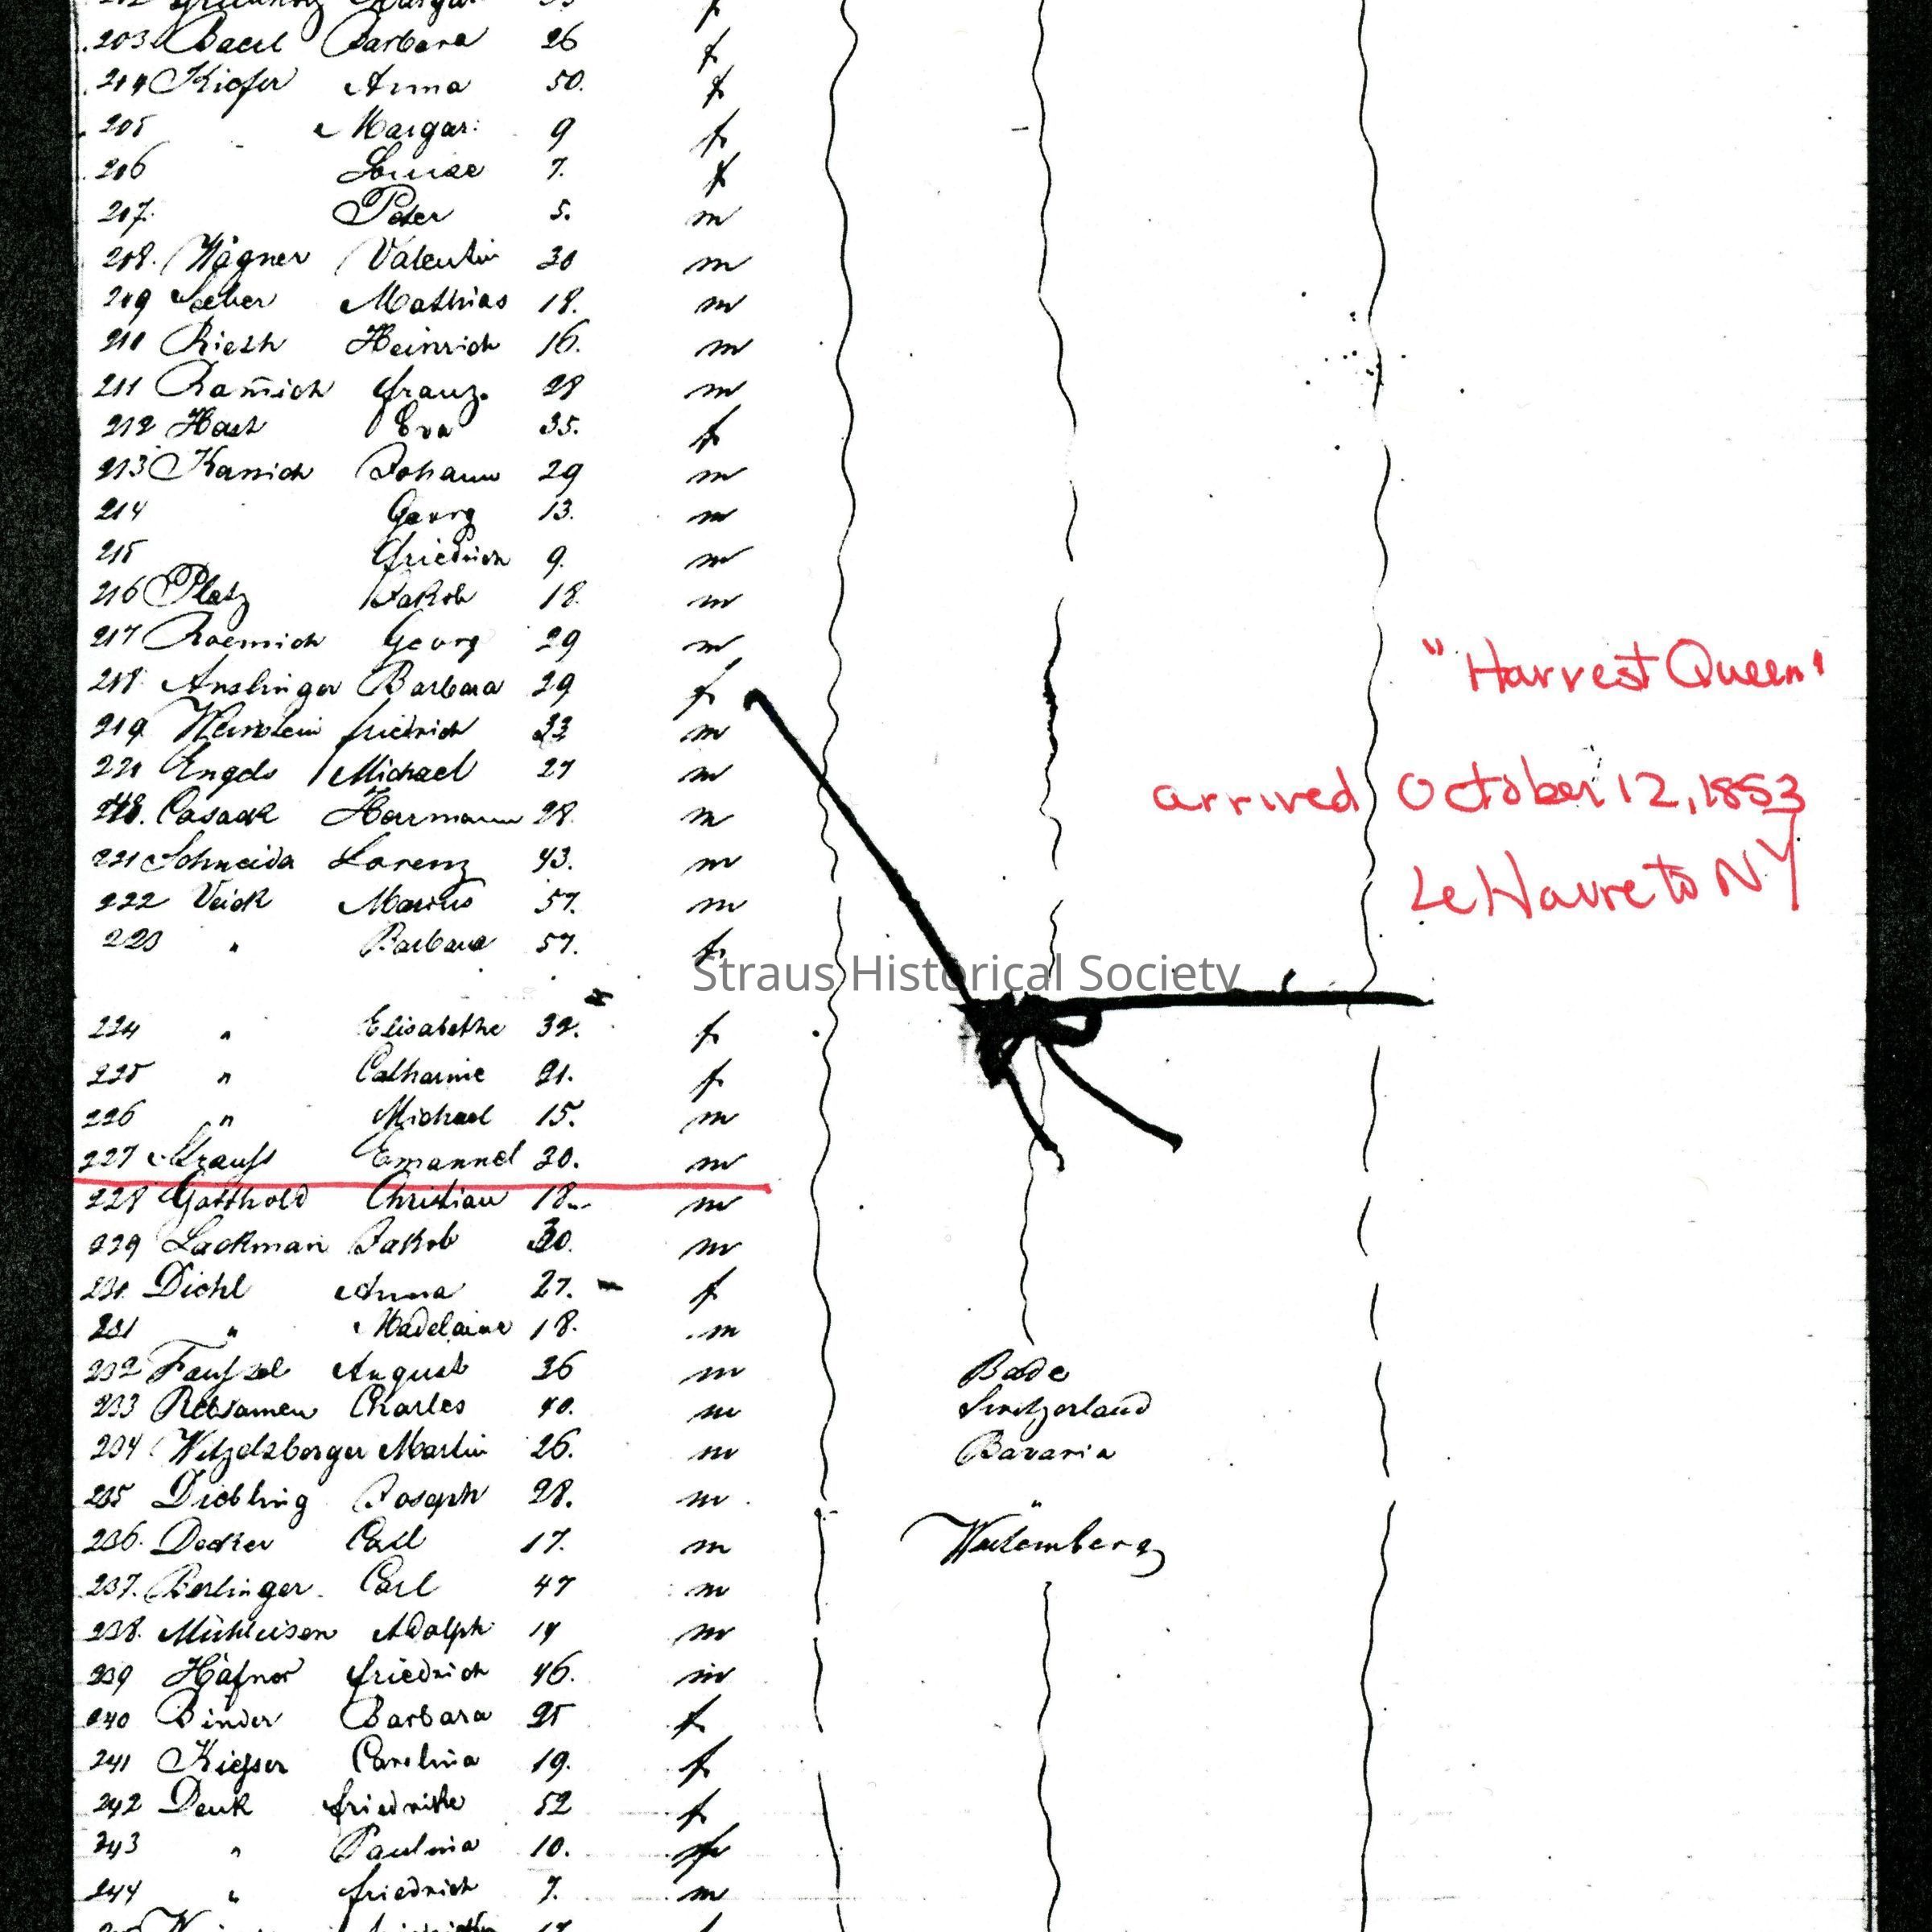 203 Barbara 26 f
204 Kiefer Anna 50. f
205 " Margar: 9 f
206 Louise 7. f
207. Peter 5. m
208. Wagner Valentin 30 m
209 Mathias 18. m
210 Heinrich 16. m
211 Franz. 28 m
212 Eva 35. f
213 Johann 29 m
214 Georg 13. m
215 Friedrich 9. m
216 Platz Jakob 18. m
217 Roemich Georg 29 m
218. Anslinger Barbara 29 f
219. Friedrich m
Engels Michael 27 m
Casack Herrmann 28. m
221 Schneida Lorenz 43. m
222 Veick 57. m
223 " Barbara 57. f
224 " Elisabethe 32. f
225 " Catharine 21. f
226 " Michael 15. m
227 Strauss Emanuel 30. m
228 Gotthold Christian 18. m
229 Lackman Jakob 30. m
230. Diehl Anna 27. f
231 " Madelaine 18. m
232 August 36 m Bade
233 Charles 40. m Switzerland
234 Witzelsberger Martin 26. m Bavaria
235 Diebling Joseph 28. m "
236. Decker Carl 17. m Wurtemberg
237. Berlinger Carl 47 m
238. Mühleisen Adolph m
239 Häfner Friedrich 46. m
240 Binder Barbara 25 f
241 Kiesser Carolina 19. f
242 Denk Friedrike 52 f
243 " Paulina 10. f
244 " Friedrich 7. m
"Harvest Queen"
arrived October 12, 1853
Le Havre to NY
Straus Historical Society